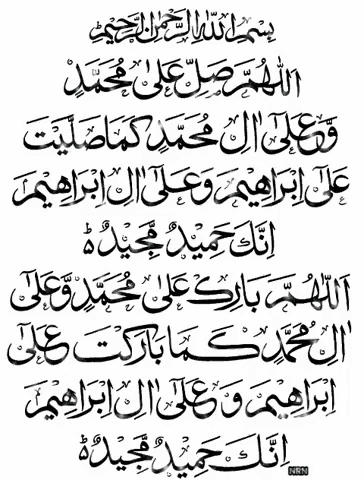 بِسْمِ اللهِ الرَّحْمٰنِ الرَّحِيْمِ
اَللّٰهُمَّ صَلِّ عَلٰى مُحَمَّدٍ
وَّعَلٰٓى اٰلِ مُحَمَّدٍ كَمَا صَلَّيْتَ
عَلٰٓى اِبْرَاهِيْمَ وَعَلٰٓى اٰلِ اِبْرَاهِيْمَ
اِنَّكَ حَمِيْدٌ مَّجِيْدٌ ؕ
اَللّٰهُمَّ بَارِكْ عَلٰى مُحَمَّدٍ وَّعَلٰٓى
اٰلِ مُحَمَّدٍ كَمَا بَارَكْتَ عَلٰٓى
اِبْرَاهِيْمَ وَعَلٰٓى اٰلِ اِبْرَاهِيْمَ
اِنَّكَ حَمِيْدٌ مَّجِيْدٌ ؕ
NRN